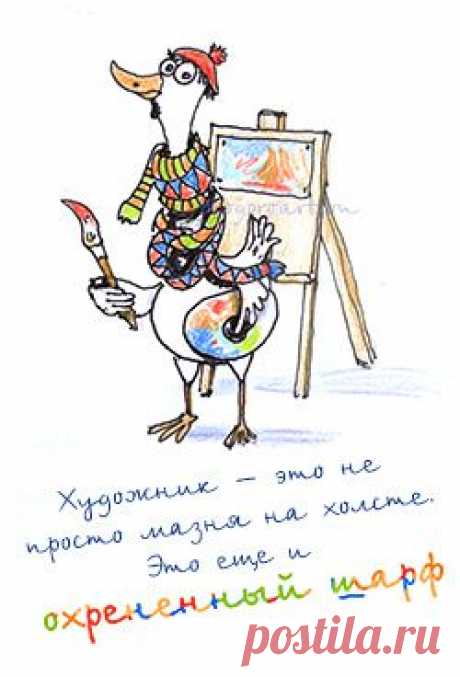 Художник – это не
просто мазня на холсте.
Это еще и
охрененный шарф
postila.ru